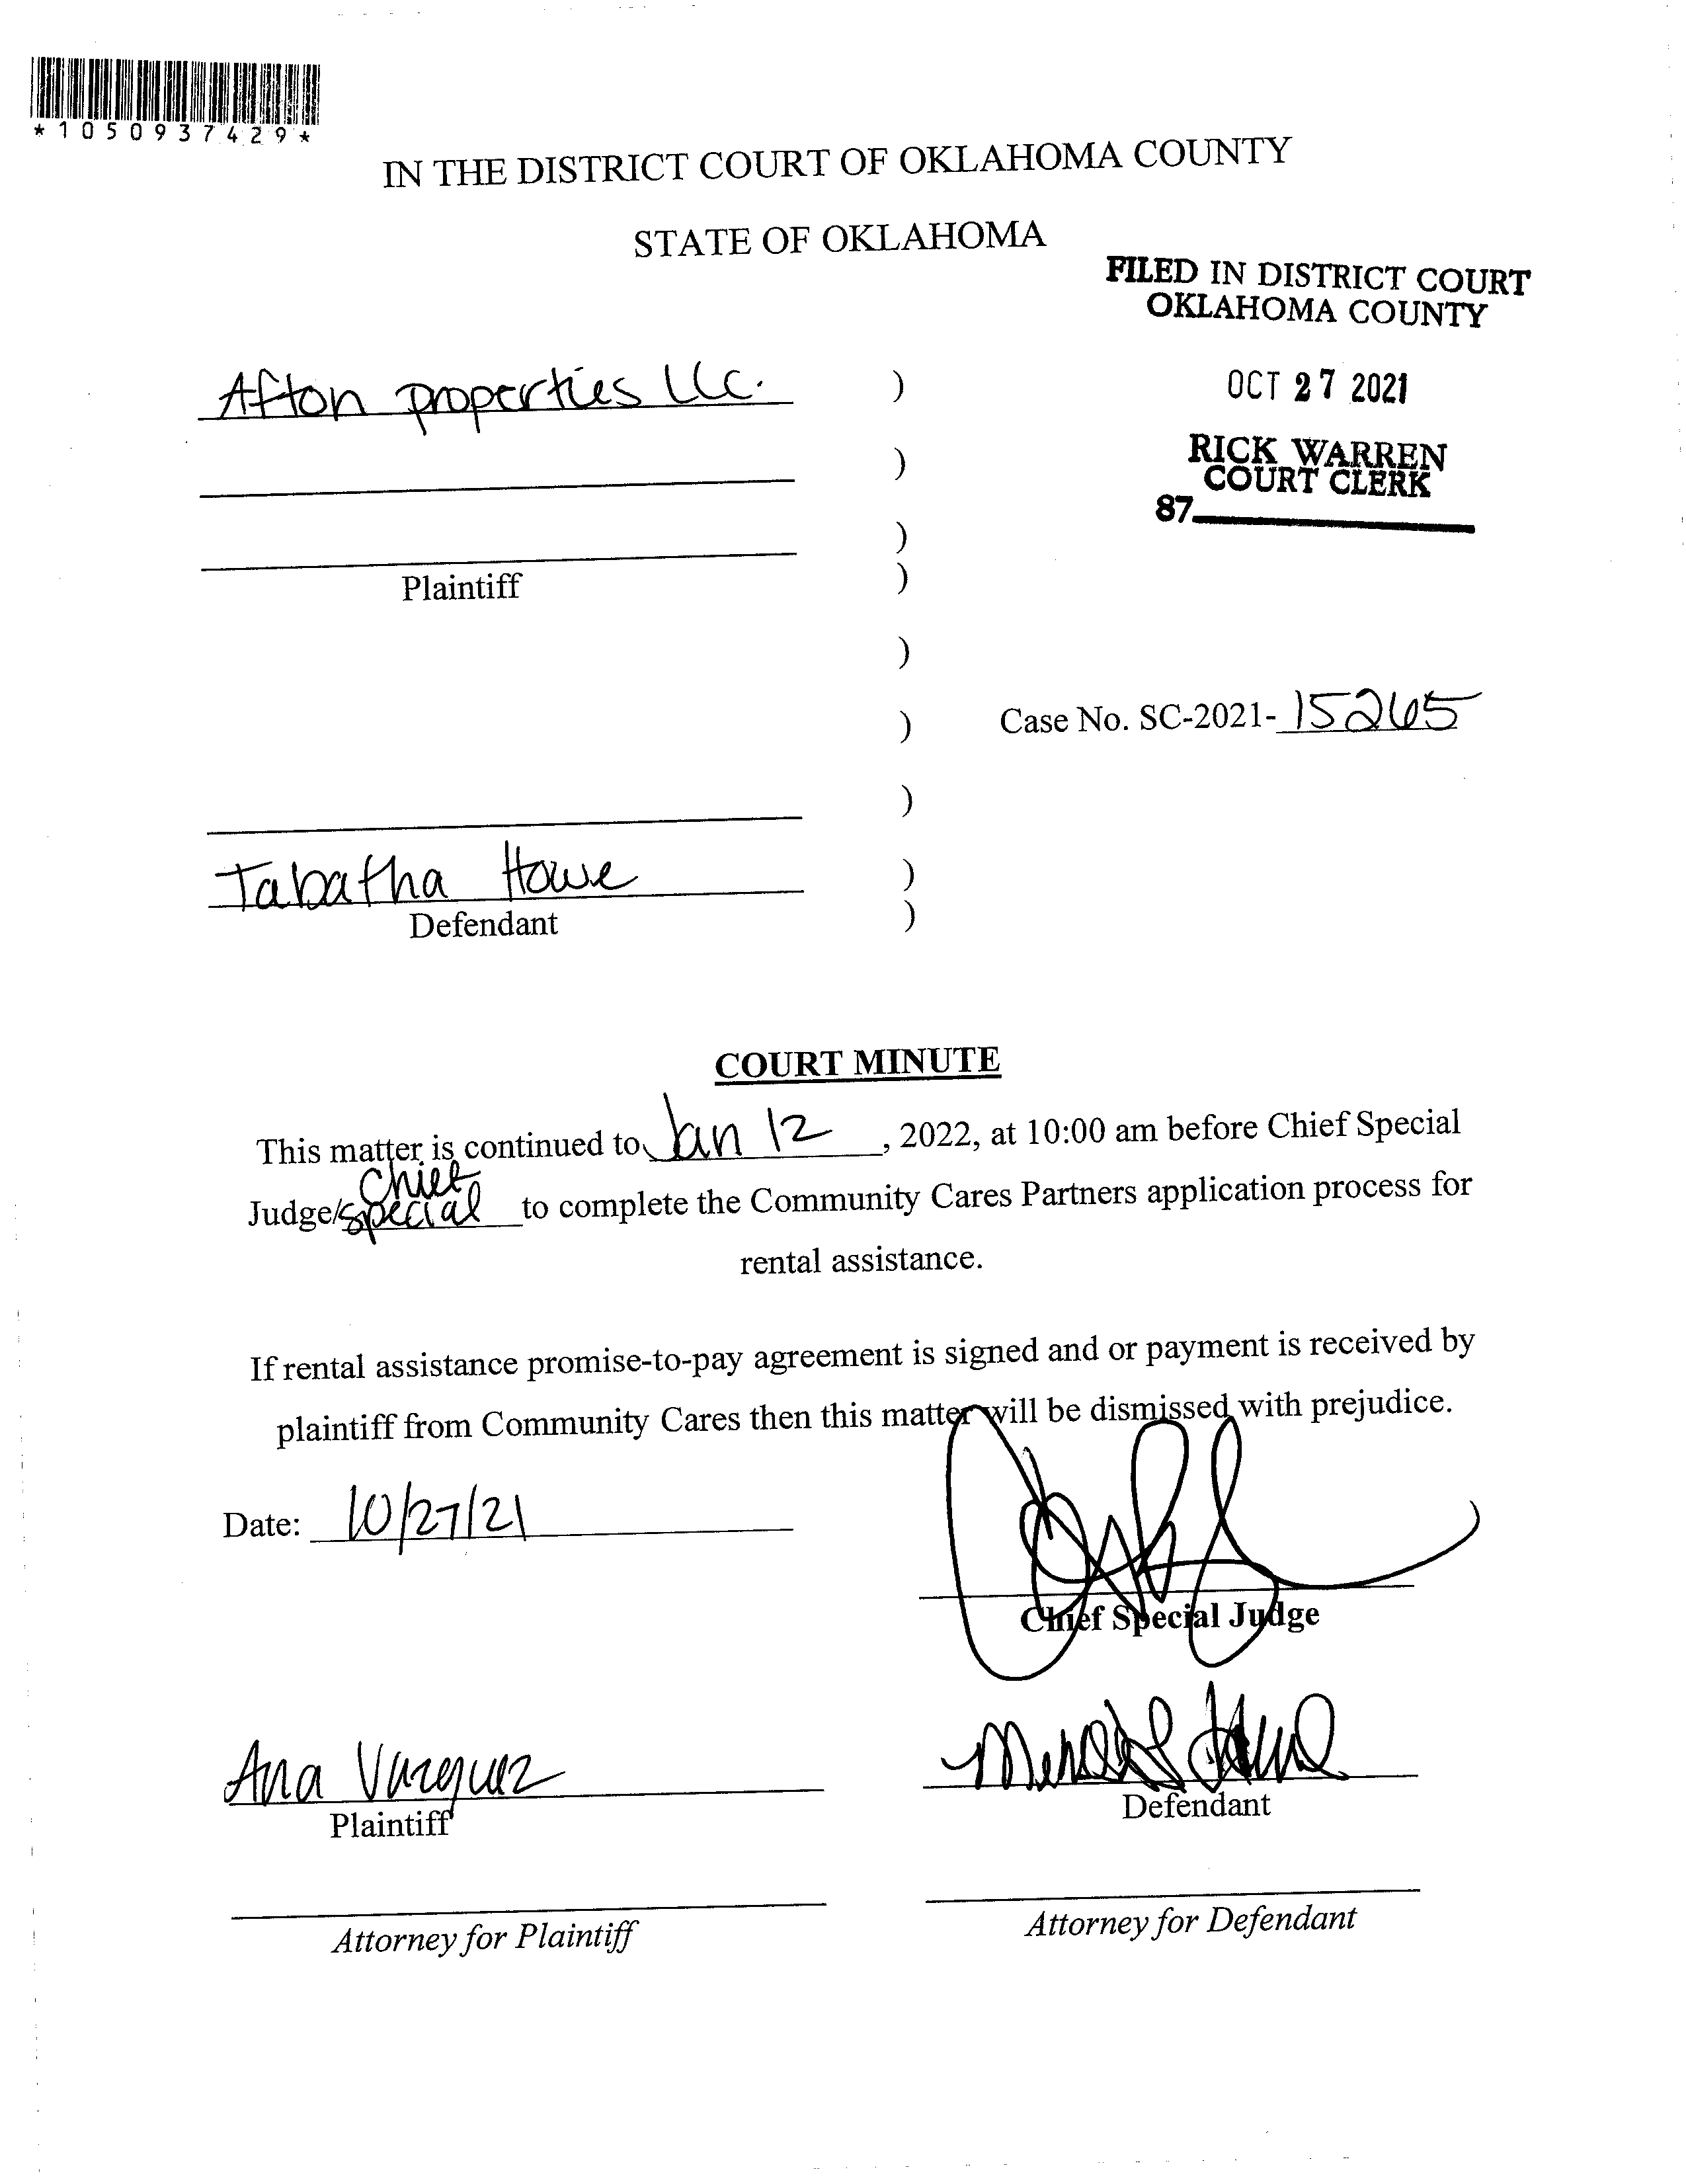 *1050937429*
IN THE DISTRICT COURT OF OKLAHOMA COUNTY
STATE OF OKLAHOMA
FILED IN DISTRICT COURT
OKLAHOMA COUNTY
OCT 27 2021
RICK WARREN
COURT CLERK
87
Afton properties LLC. )
)
)
Plaintiff )
)
) Case No. SC-2021-15265
)
Tabatha Howe )
Defendant )
COURT MINUTE
This matter is continued to Jan 12, 2022, at 10:00 am before Chief Special
Chief
Judge/special to complete the Community Cares Partners application process for
rental assistance.
If rental assistance promise-to-pay agreement is signed and or payment is received by
plaintiff from Community Cares then this matter will be dismissed with prejudice.
Date: 10/27/21
Chief Special Judge
Ana Vazquez
Plaintiff
Defendant
Attorney for Plaintiff
Attorney for Defendant